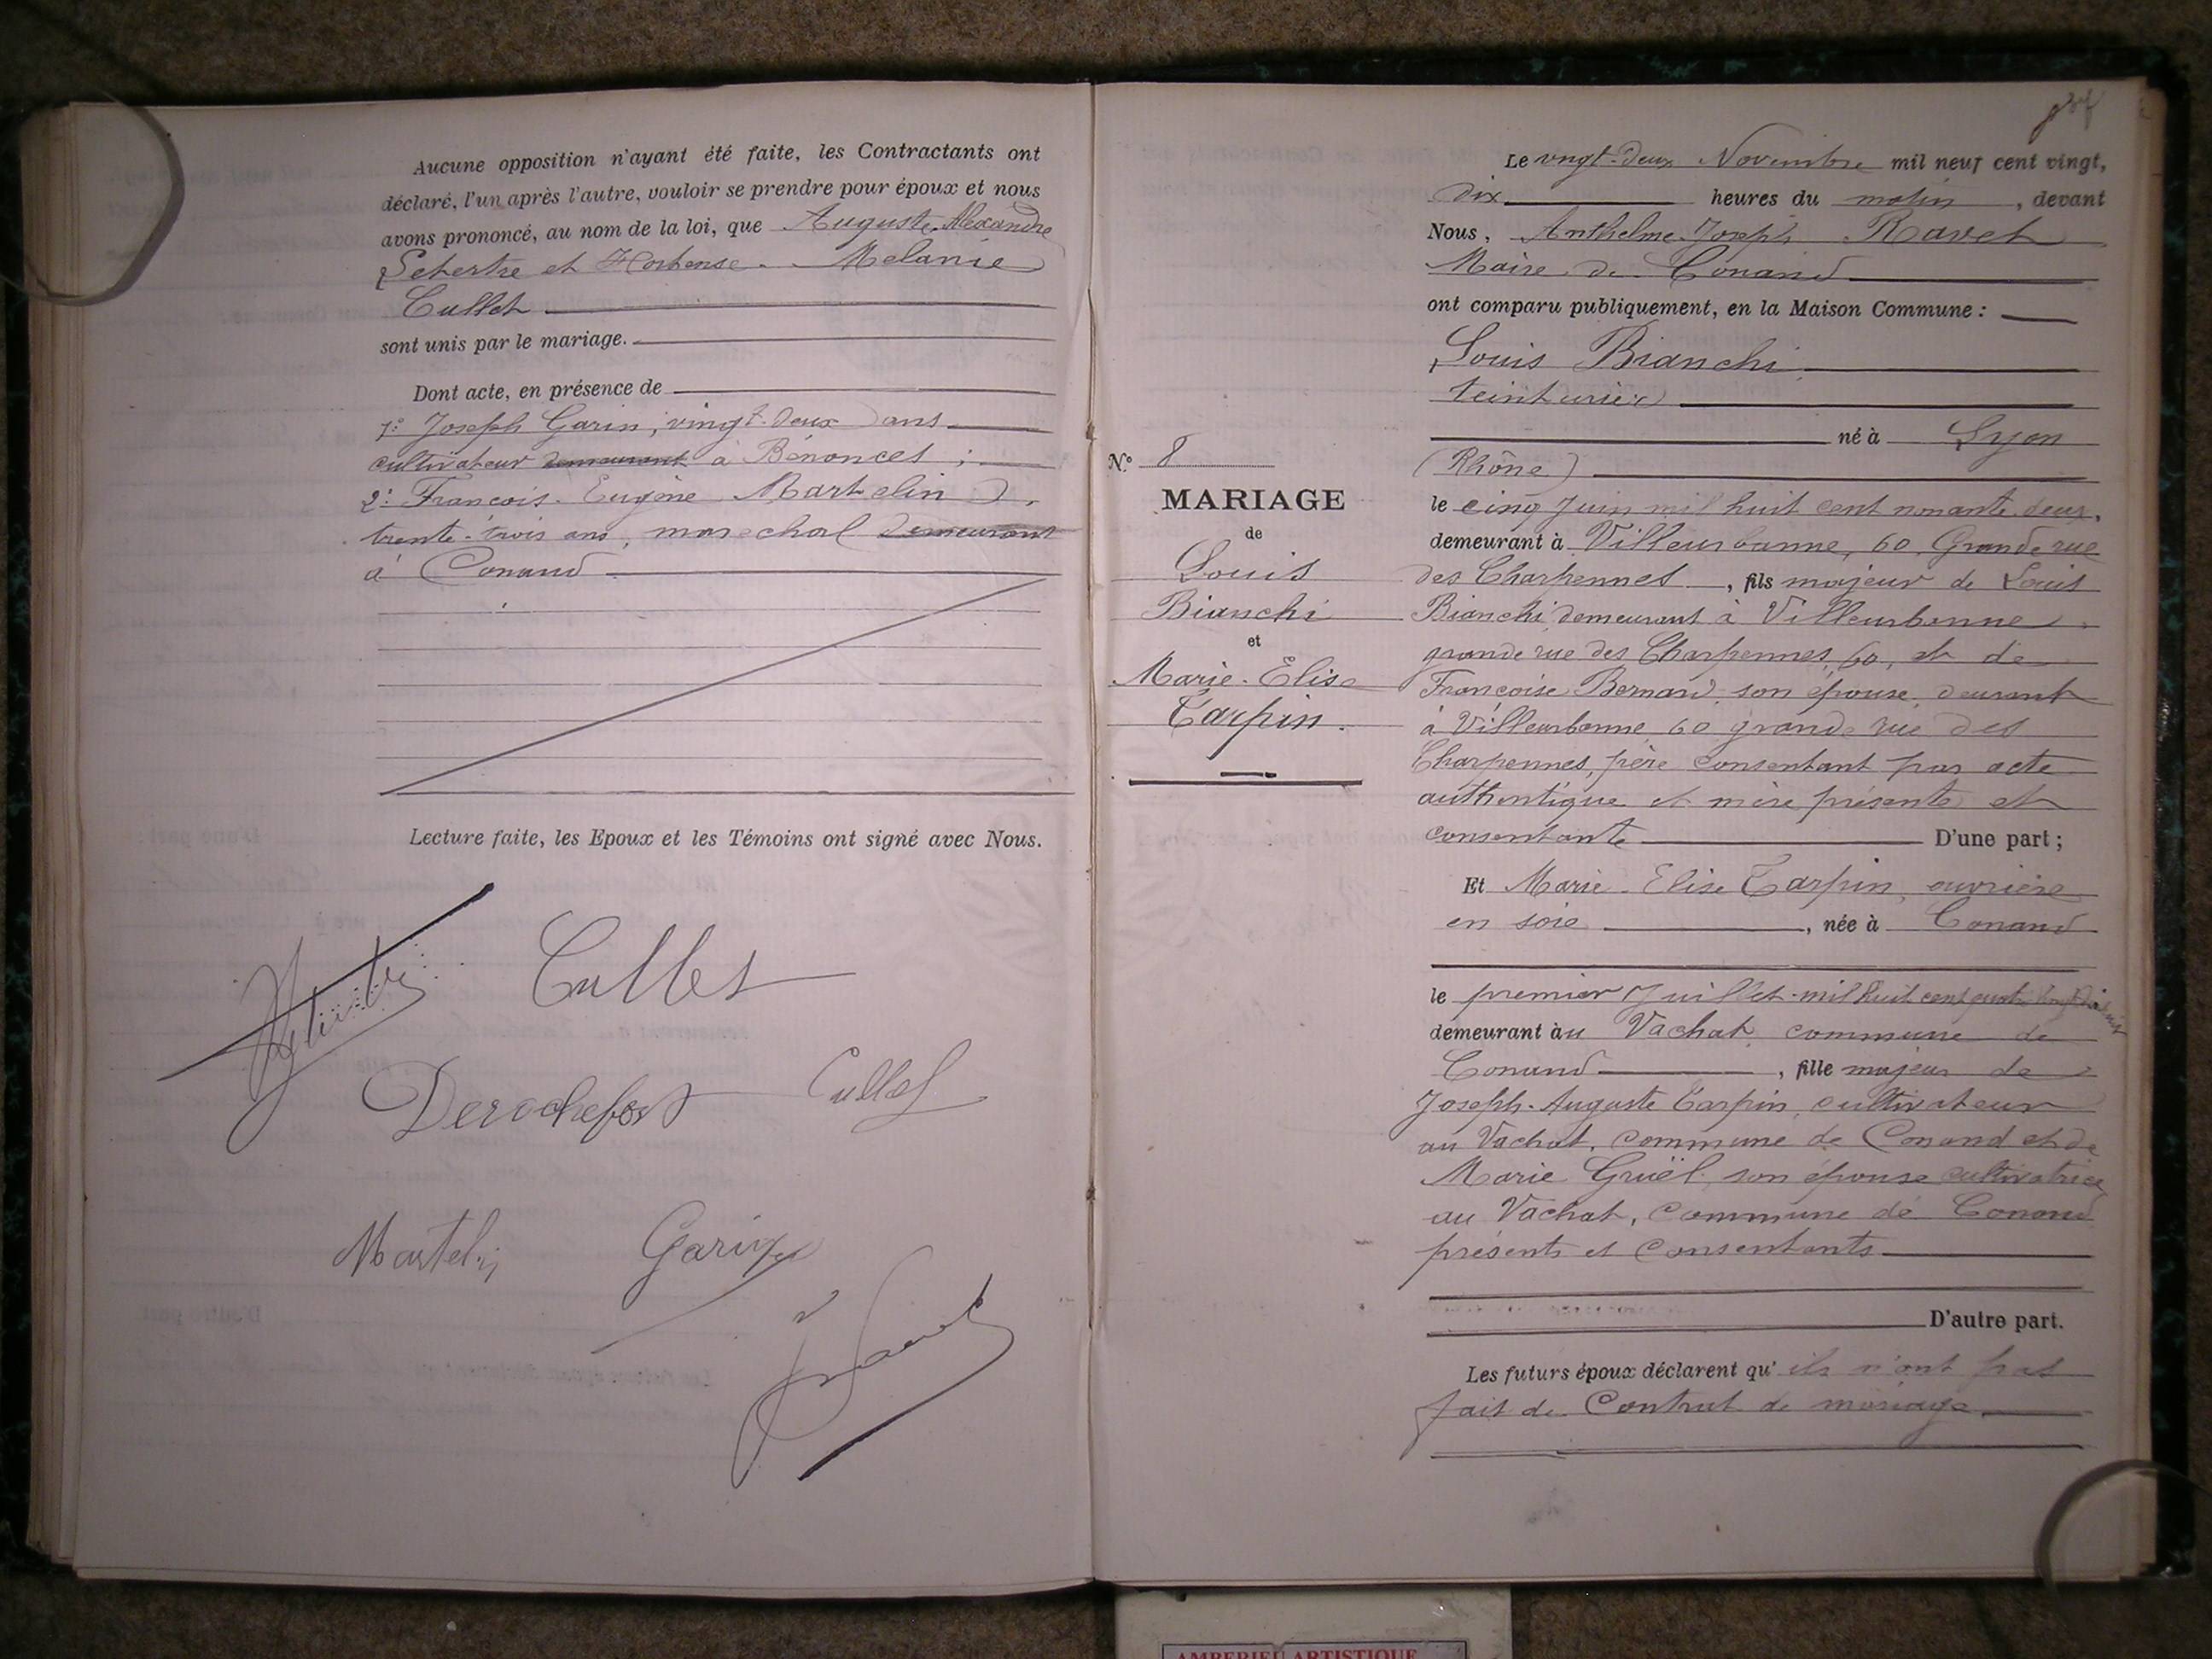 Aucune opposition n'ayant été faite, les Contractants ont
déclaré, l'un après l'autre, vouloir se prendre pour époux et nous
avons prononcé, au nom de la loi, que Auguste Alexandre
et Hortense Melanie
Cullet
sont unis par le mariage.
Dont acte, en présence de
1º Joseph Garin, vingt-deux ans
cultivateur demeurant à Bénonces ;
2º François-Eugène Martelin
trente-trois ans, marechal demeurant
à Conand
Lecture faite, les Epoux et les Témoins ont signé avec Nous.
Cullet
Derochefort Cullet
Martelin Garin
Ravet
Nº 8
MARIAGE
de
Louis
Bianchi
et
Marie-Elise
Tarpin.
Le vingt-deux Novembre mil neuf cent vingt,
dix heures du matin, devant
Nous, Anthelme Joseph Ravet
Maire de Conand
ont comparu publiquement, en la Maison Commune :
Louis Bianchi
teinturier
né à Lyon
(Rhône)
le cinq Juin mil huit cent nonante deux,
demeurant à Villeurbanne, 60, Grande rue
des Charpennes, fils majeur de Louis
Bianchi demeurant à Villeurbanne
grande rue des Charpennes, 60, et de
Françoise Bernard son épouse, deurant
à Villeurbanne 60 grande rue des
Charpennes, père consentant par acte
authentique et mère présente et
consentante D'une part ;
Et Marie-Elise Tarpin, ouvrière
en soie, née à Conand
le premier Juillet mil huit cent quatre vingt
demeurant àu Vachat, commune de
Conand, fille majeur de
Joseph-Auguste Tarpin, cultivateur
au Vachat, commune de Conand et de
Marie Gruël, son épouse cultivatrice
au Vachat, Commune de Conand
présents et Consentants
D'autre part.
Les futurs époux déclarent qu'ils n'ont pas
fait de Contrat de mariage
AMBERIEU ARTISTIQUE